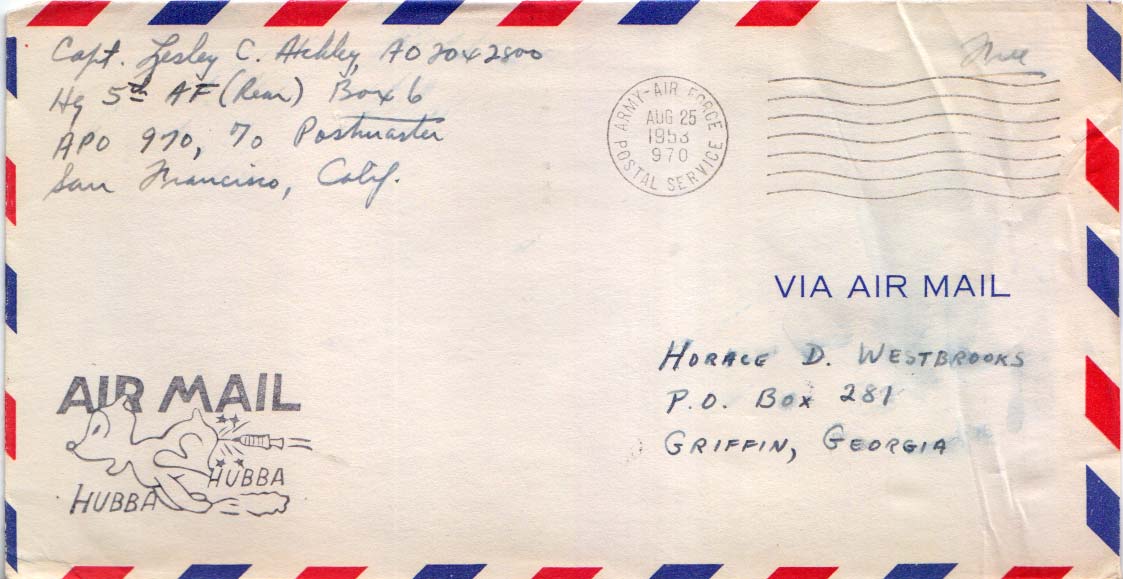 Capt. Lesley C. Atchley, AO 2042800
Hq 5th AF (Rear) Box 6
APO 970, % Postmaster
San Francisco, Calif.
Free
ARMY-AIR FORCE
AUG 25
1953
970
POSTAL SERVICE
VIA AIR MAIL
HORACE D. WESTBROOKS
P.O. BOX 281
GRIFFIN, GEORGIA
AIR MAIL
HUBBA
HUBBA